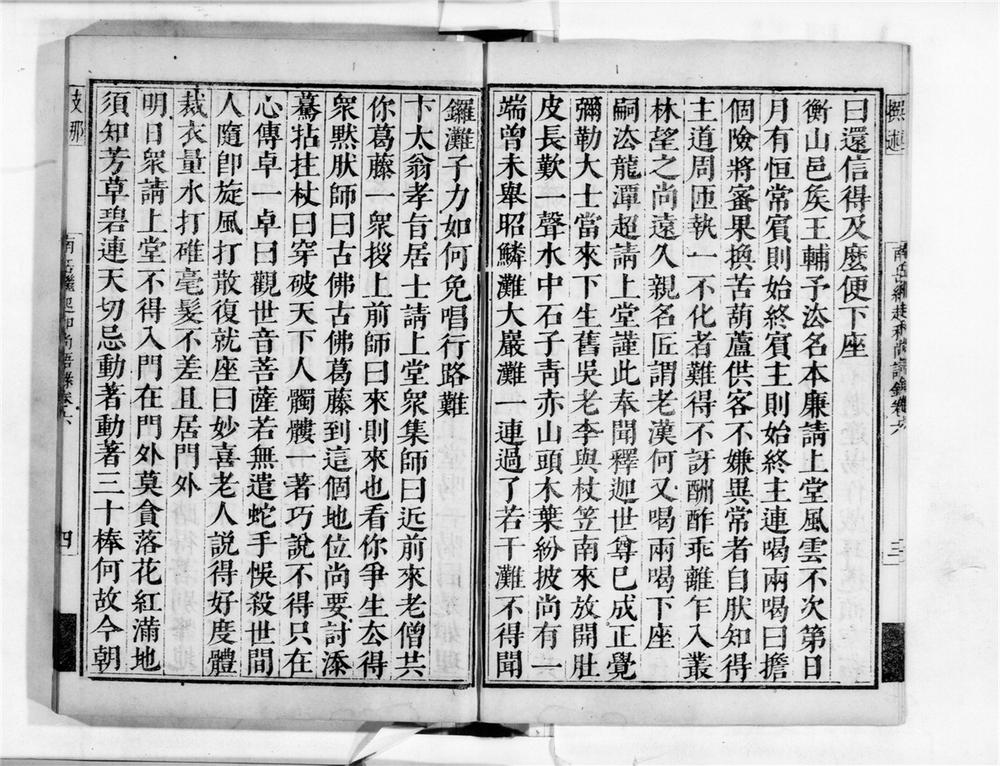 撰述
曰還信得及麽便下座
衡山邑矦王輔予汯名本廉請上堂風雲不次第日
月有恒常賓則始終賓主則始終主連喝兩喝曰擔
個險將蜜果換苦葫蘆供客不嫌異常者自肰知得
主道周匝執一不化者難得不訝酬酢乖離乍入叢
林望之尚遠久親名匠謂老漢何又喝兩喝下座
嗣汯龍潭超請上堂謹此奉聞釋迦世尊已成正覺
彌勒大士當來下生舊吳老李與杖笠南來放開肚
皮長歎一聲水中石子靑赤山頭木葉紛披尚有一
端曾未舉昭鱗灘大嚴灘一連過了若干灘不得聞
南岳繼起和尚語錄卷六
三
鑼灘子力如何免唱行路難
卞太翁孝旨居士請上堂衆集師曰近前來老僧共
你葛藤一衆拶上前師曰來則來也看你爭生厺得
衆默肰師曰古佛古佛葛藤到這個地位尚要討漆
驀拈拄杖曰穿破天下人髑髏一著巧說不得只在
心傳卓一卓曰觀世音菩薩若無遣蛇手悞殺世間
人隨卽旋風打散復就座曰妙喜老人說得好度體
裁衣量水打碓毫髮不差且居門外
明日衆請上堂不得入門在門外莫貪落花紅滿地
須知芳草碧連天切忌動著動著三十棒何故今朝
支那
南岳繼起和尚語錄卷六
四